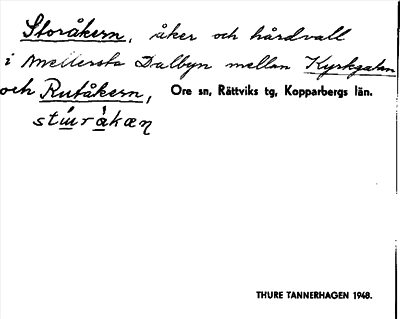 Storåkern, åker och hårdvall
i Mellersta Dalbyn mellan Kyrkgatan
och Rutåkern, Ore sn, Rättviks tg, Kopparbergs län.
THURE TANNERHAGEN 1948.